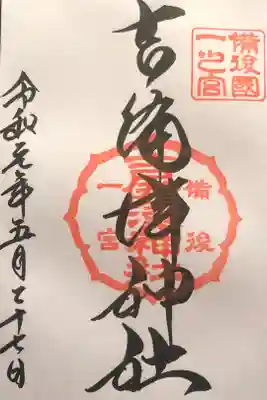 備後國
一之宮
吉備津神社
備後
一宮
令和元年五月二十七日